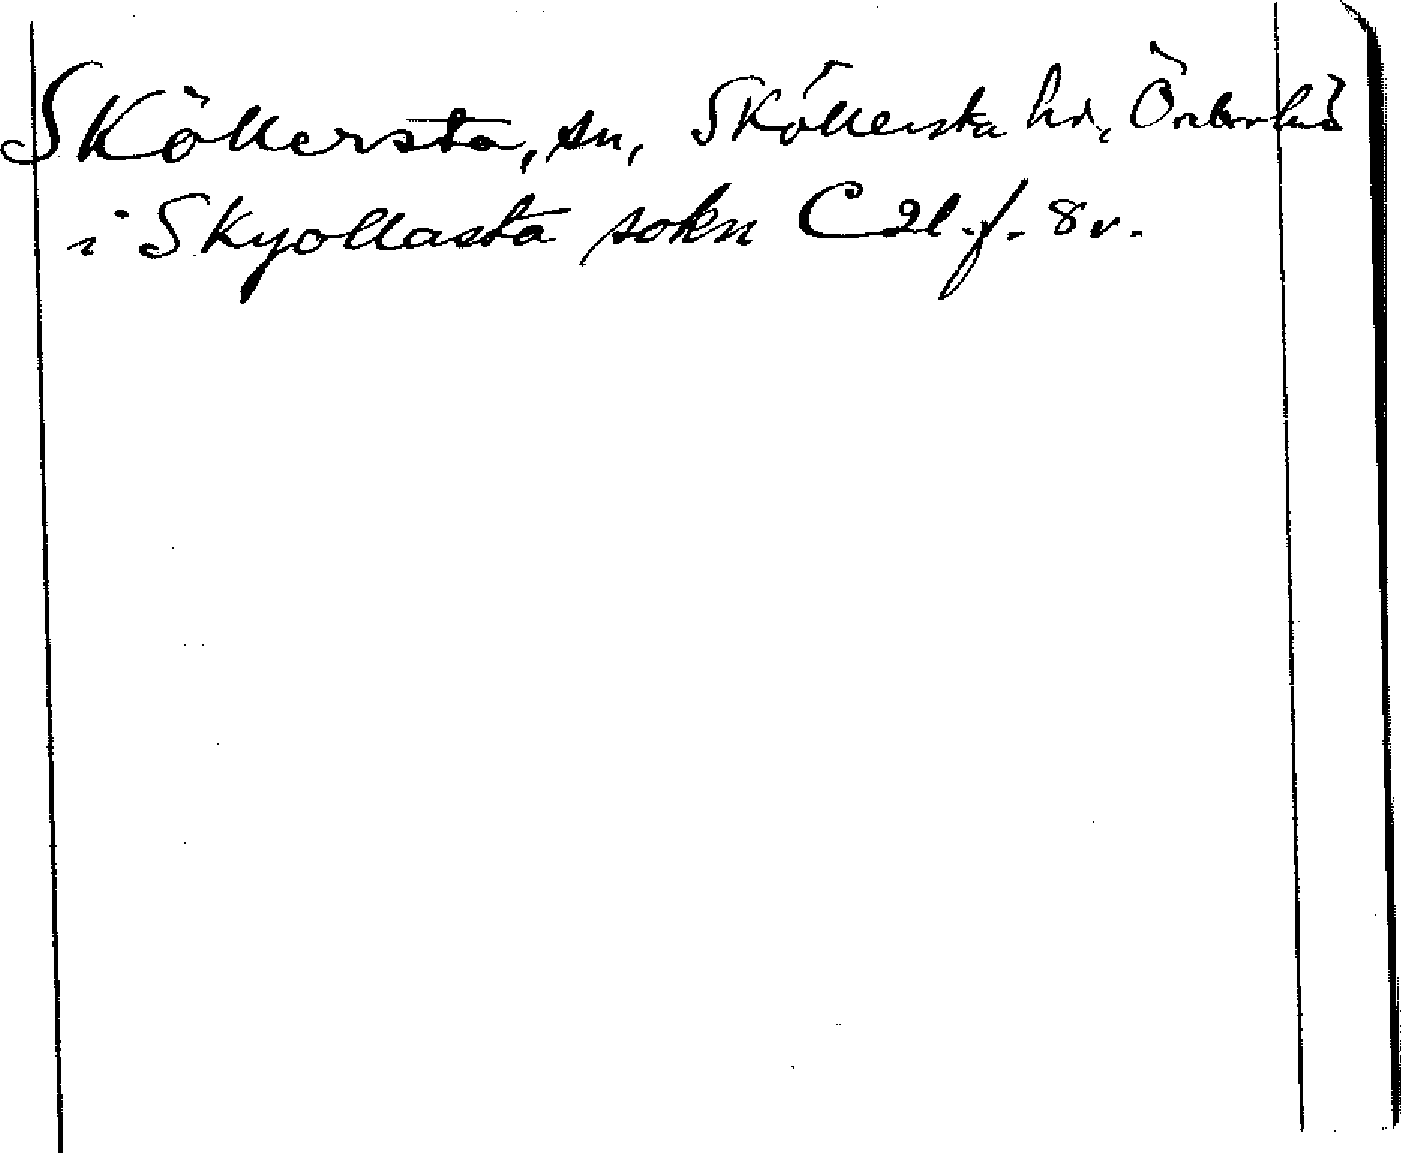 Sköllersta, sn, Sköllersta hd, Örebro län
i Skyollasta sokn C 21. f. 8 v.